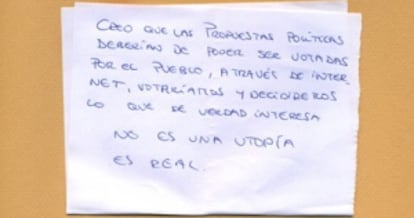 CREO QUE LAS PROPUESTAS POLÍTICAS
DEBERÍAN DE PODER SER VOTADAS
POR EL PUEBLO, A TRAVÉS DE INTER
NET, VOTARÍAMOS Y DECIDIREMOS
LO QUE DE VERDAD INTERESA
NO ES UNA UTOPÍA
ES REAL.